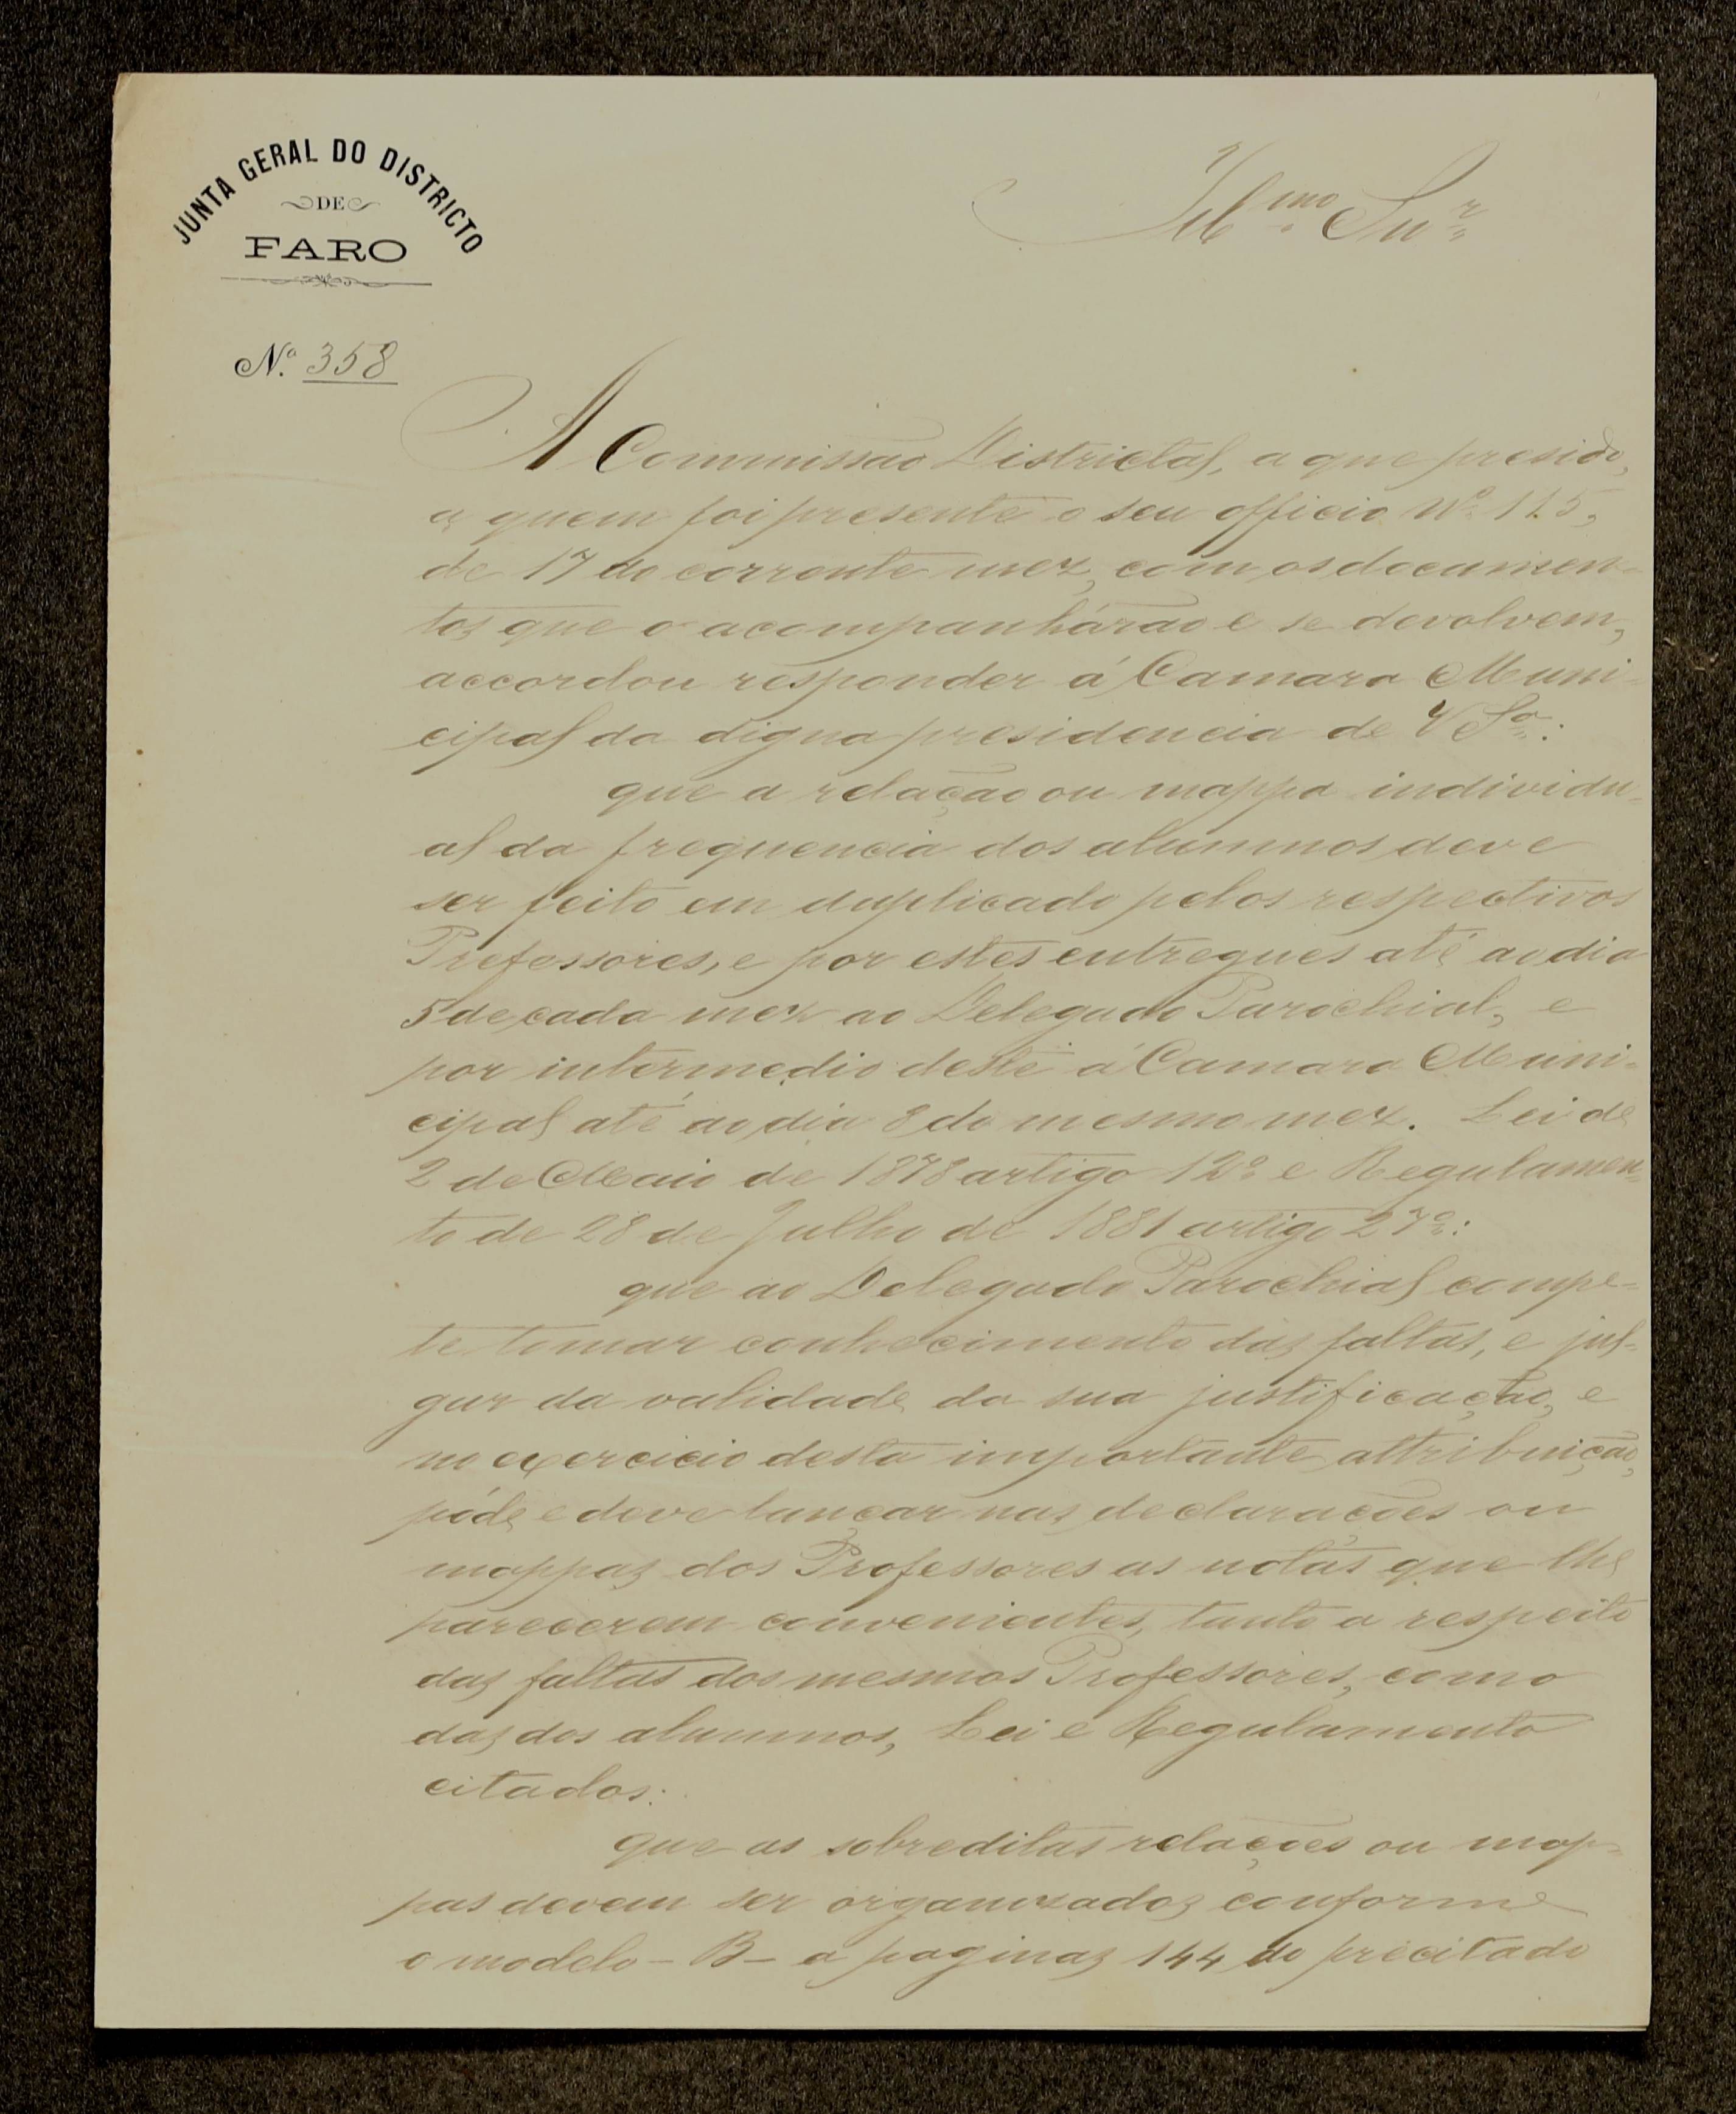 JUNTA GERAL DO DISTRICTO
DE
FARO
N.º 358
Illmo Snr
A Commissão Districtal, a que presido,
a quem foi presente o seu officio Nº 115,
de 17 do corrente mez, com os documen-
tos que o acompanhárão e se devolvem,
accordou responder á Camara Muni-
cipal da digna presidencia de V Sa:
que a relação ou mappa individu-
al da frequencia dos alumnos deve
ser feito em duplicado pelos respectivos
Professores, e por estes entregues até ao dia
5 de cada mez ao Delegado Parochial, e
por intermedio deste á Camara Muni-
cipal até ao dia 8 do mesmo mez. Lei de
2 de Maio de 1878 artigo 12º e Regulamen-
to de 28 de Julho de 1881 artigo 27º:
que ao Delegado Parochial compe-
te tomar conhecimento das faltas, e jul-
gar da validade da sua justificação, e
no exercicio desta importante attribuição,
póde e deve lançar nas declarações ou
mappas dos Professores as notas que lhe
parecerem convenientes, tanto a respeito
das faltas dos mesmos Professores, como
das dos alumnos, Lei e Regulamento
citados:
que as sobreditas relações ou map-
pas devem ser organizados conforme
o modelo - B - a paginas 144 do precitado